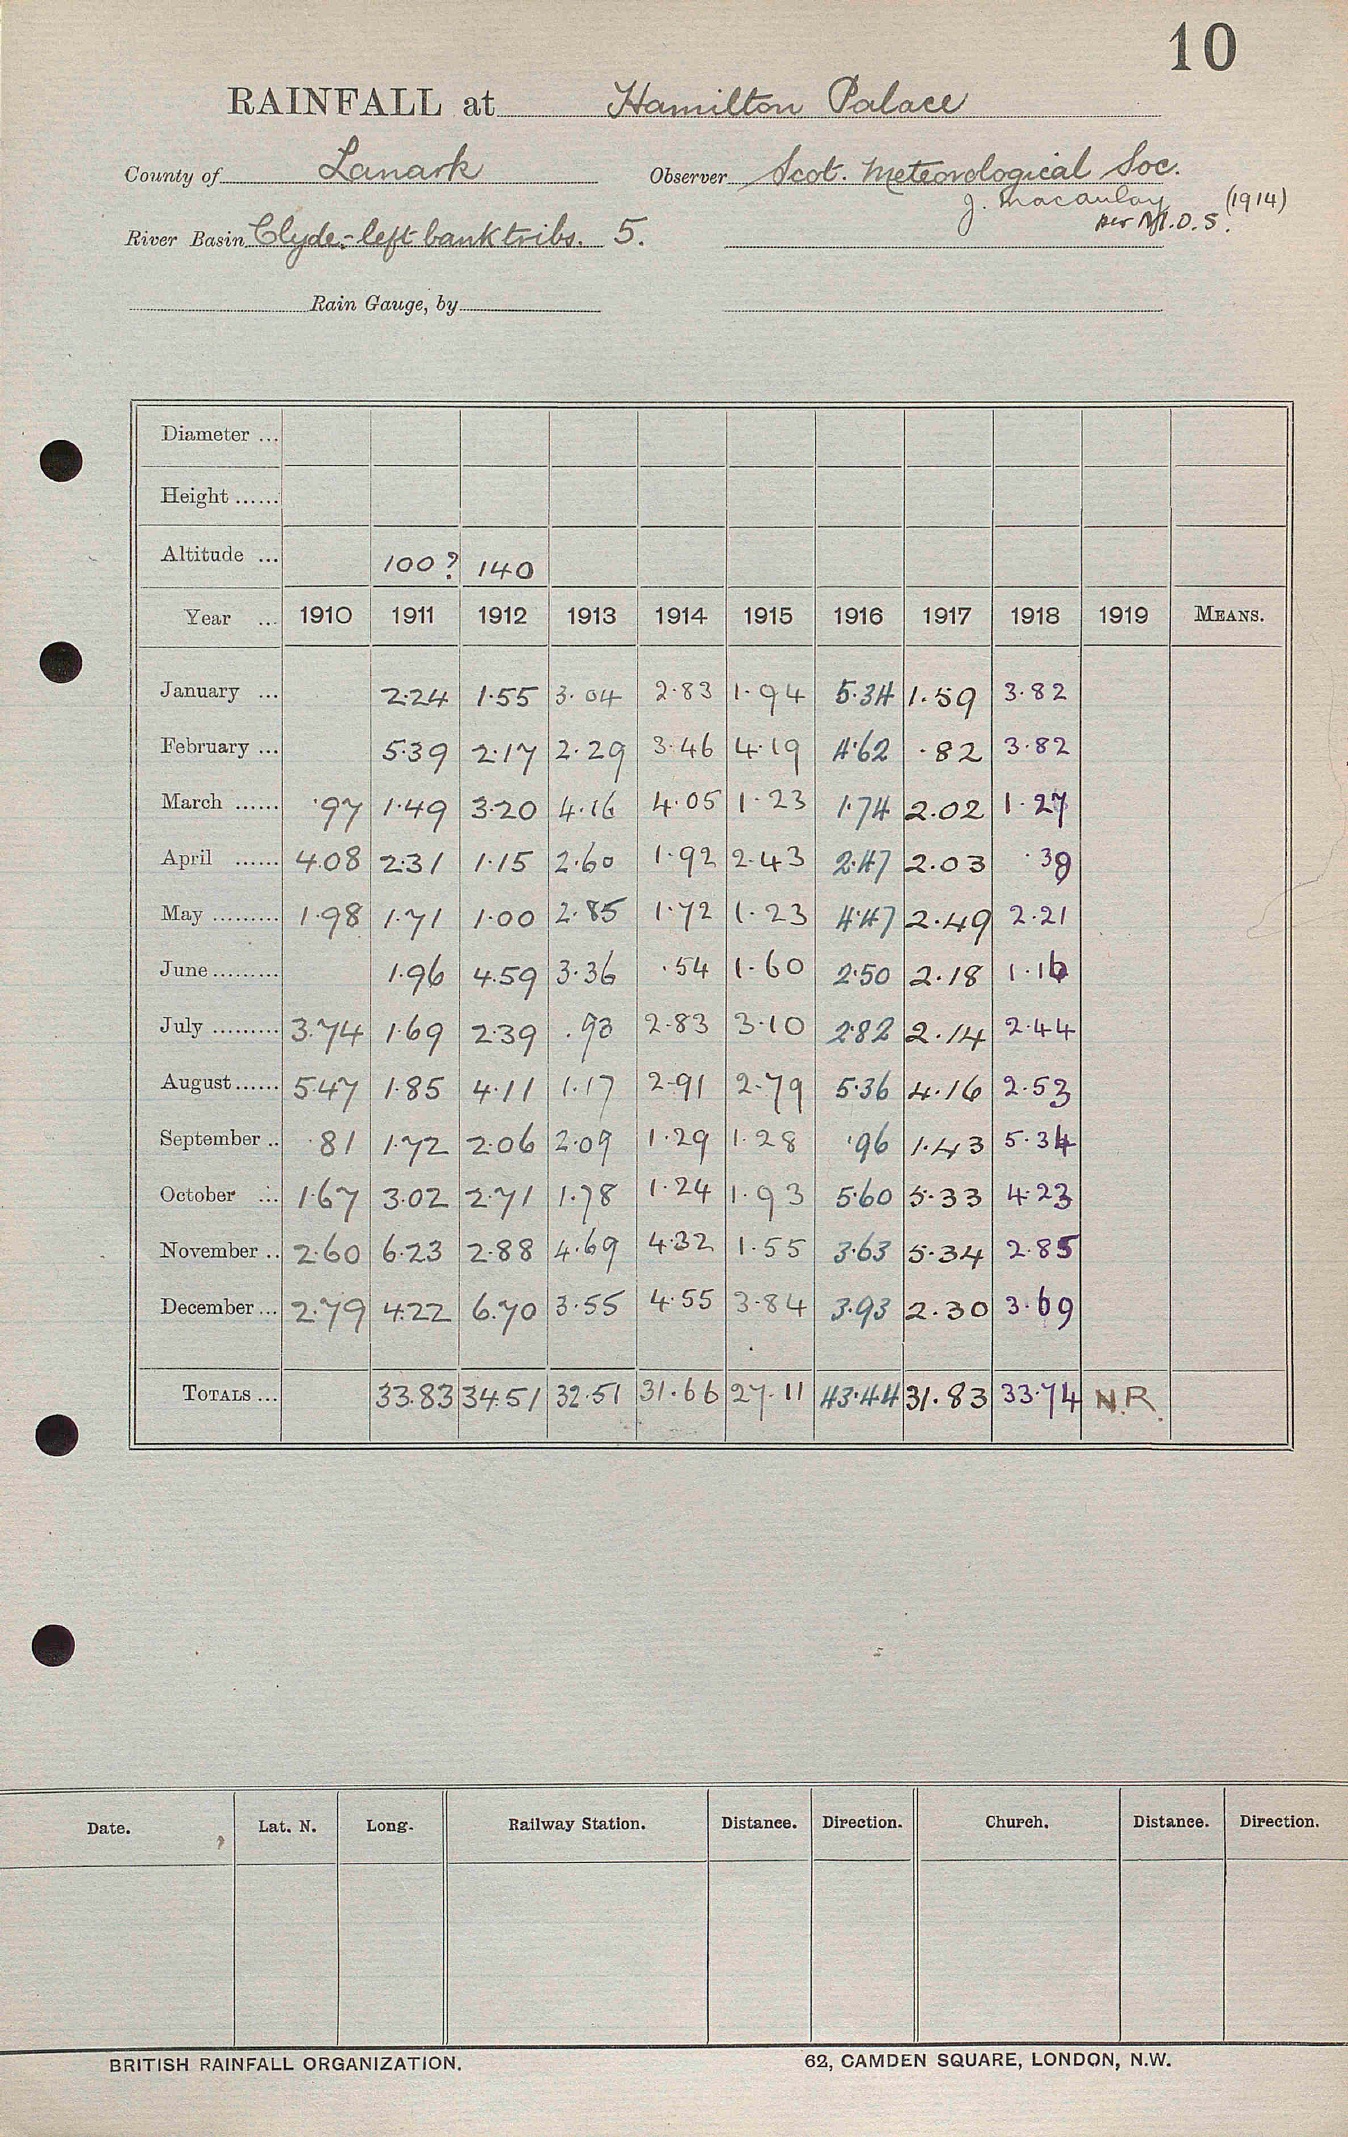 10
RAINFALL at Hamilton Palace
County of Lanark Observer Scot. Meteorological Soc.
J. Macaulay (1914)
per M.O.S.
River Basin Clyde:- left bank tribs. 5.
Rain Gauge, by
Diameter ...
Height ......
Altitude ... 100? 140
Year ... 1910 1911 1912 1913 1914 1915 1916 1917 1918 1919 MEANS.
January ... 2.24 1.55 3.04 2.83 1.94 5.34 1.59 3.82
February ... 5.39 2.17 2.29 3.46 4.19 4.62 .82 3.82
March ...... .97 1.49 3.20 4.16 4.05 1.23 1.74 2.02 1.27
April ...... 4.08 2.31 1.15 2.60 1.92 2.43 2.47 2.03 .38
May ......... 1.98 1.71 1.00 2.85 1.72 1.23 4.47 2.49 2.21
June ......... 1.96 4.59 3.36 .54 1.60 2.50 2.18 1.16
July ......... 3.74 1.69 2.39 .93 2.83 3.10 2.82 2.14 2.44
August ...... 5.47 1.85 4.11 1.17 2.91 2.79 5.36 4.16 2.53
September .. .81 1.72 2.06 2.09 1.29 1.28 .96 1.43 5.34
October ... 1.67 3.02 2.71 1.78 1.24 1.93 5.60 5.33 4.23
November .. 2.60 6.23 2.88 4.69 4.32 1.55 3.63 5.34 2.85
December ... 2.79 4.22 6.70 3.55 4.55 3.84 3.93 2.30 3.69
TOTALS ... 33.83 34.51 32.51 31.66 27.11 43.44 31.83 33.74 N.R.
Date. Lat. N. Long. Railway Station. Distance. Direction. Church. Distance. Direction.
BRITISH RAINFALL ORGANIZATION. 62, CAMDEN SQUARE, LONDON, N.W.